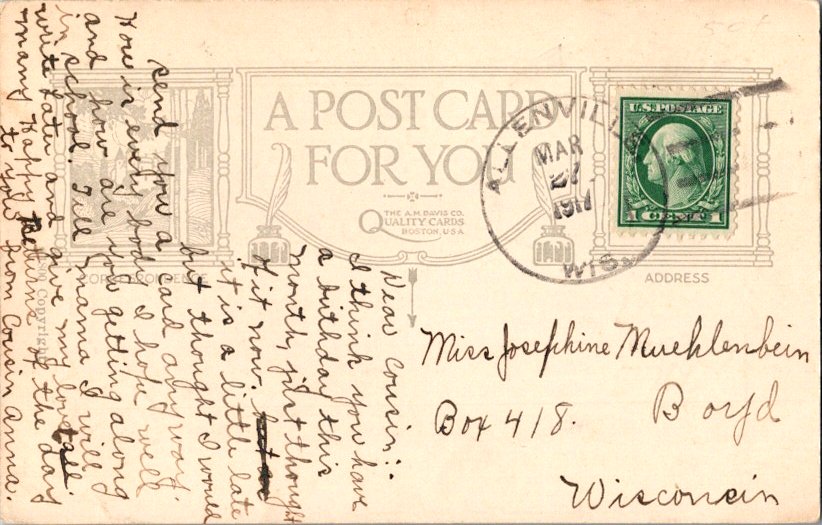 A POST CARD
FOR YOU
THE A.M. DAVIS CO.
QUALITY CARDS
BOSTON, U.S.A
CORRESPONDENCE
ADDRESS
ALLENVILLE
MAR
27
1917
WIS.
U.S. POSTAGE
1 CENT 1
Miss Josephine Muehlenbein
Box 418. Boyd
Wisconsin
Dear Cousin:.
I think you have
a birthday this
month, just thought
of it now,
it is a little late
but thought I would
send you a card anyway.
How is every body I hope well
and how are you getting along
in school. Tell mama I will
write later and give my love to all.
many Happy Returns of the day
to you from Cousin Anna.
Copyright